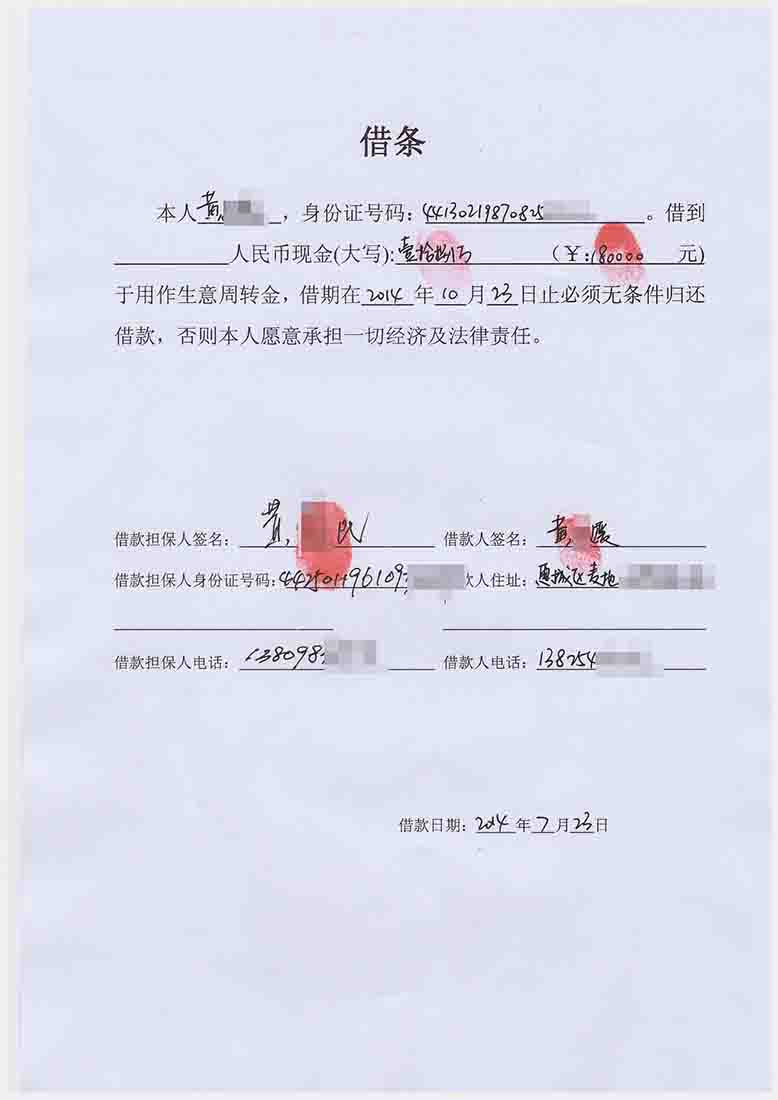 借条
本人黄 ，身份证号码：44130219870825 。借到
人民币现金(大写):壹拾捌万 （￥:180000 元)
于用作生意周转金，借期在2014年10月23日止必须无条件归还
借款，否则本人愿意承担一切经济及法律责任。
借款担保人签名：黄 民 借款人签名：黄 霞
借款担保人身份证号码：442501196109 款人住址：惠城区麦地
借款担保人电话：138098 借款人电话：138254
借款日期：2014年7月23日